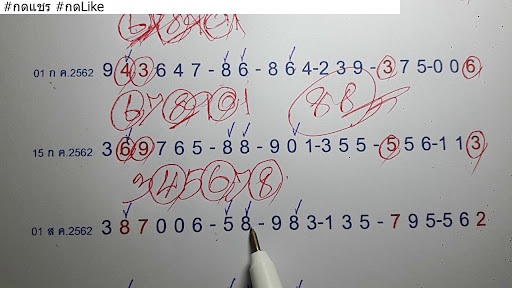 #กดแชร์ #กดLike
01 ก ค.2562 9 4 3 6 4 7 - 8 6 - 8 6 4-2 3 9 - 3 7 5-0 0 6
6 7 8 9 0 1 88
15 ก ค.2562 3 6 9 7 6 5 - 8 8 - 9 0 1-3 5 5 - 5 5 6-1 1 3
3 4 5 6 7 8
01 ส ค.2562 3 8 7 0 0 6 - 5 8 - 9 8 3-1 3 5 - 7 9 5-5 6 2